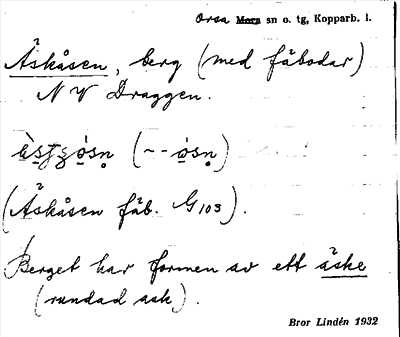 Orsa Mora sn o. tg, Kopparb. l.
Äskåsen, berg (med fäbodar)
N V Draggen.
(Äskåsen fäb. G103).
Berget har formen av ett äske
(rundad ask).
Bror Lindén 1932